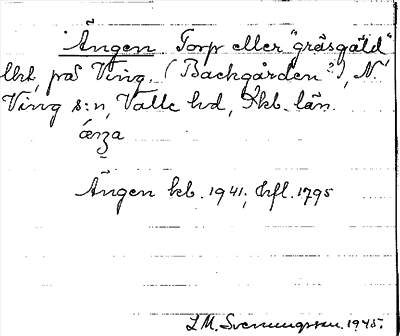 Ängen Torp eller "gräsgäld"
lht, på Ving. (Backgården?), N.
Ving s:n, Valle hd, Skb. län.
æŋa
Ängen kb. 1941; hfl. 1795
I.M. Svenungsson. 1945.